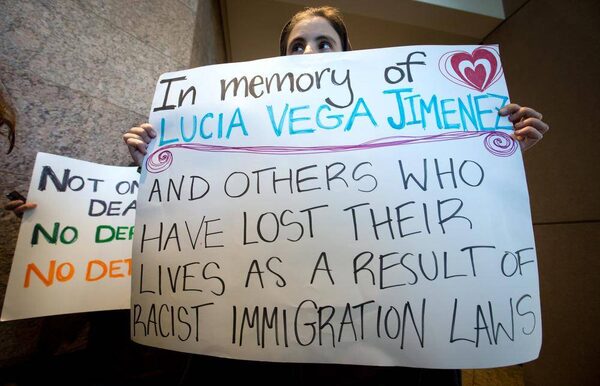 In memory of
LUCIA VEGA JIMENEZ
AND OTHERS WHO
HAVE LOST THEIR
LIVES AS A RESULT OF
RACIST IMMIGRATION LAWS
NOT
DEA
NO DE
NO DET